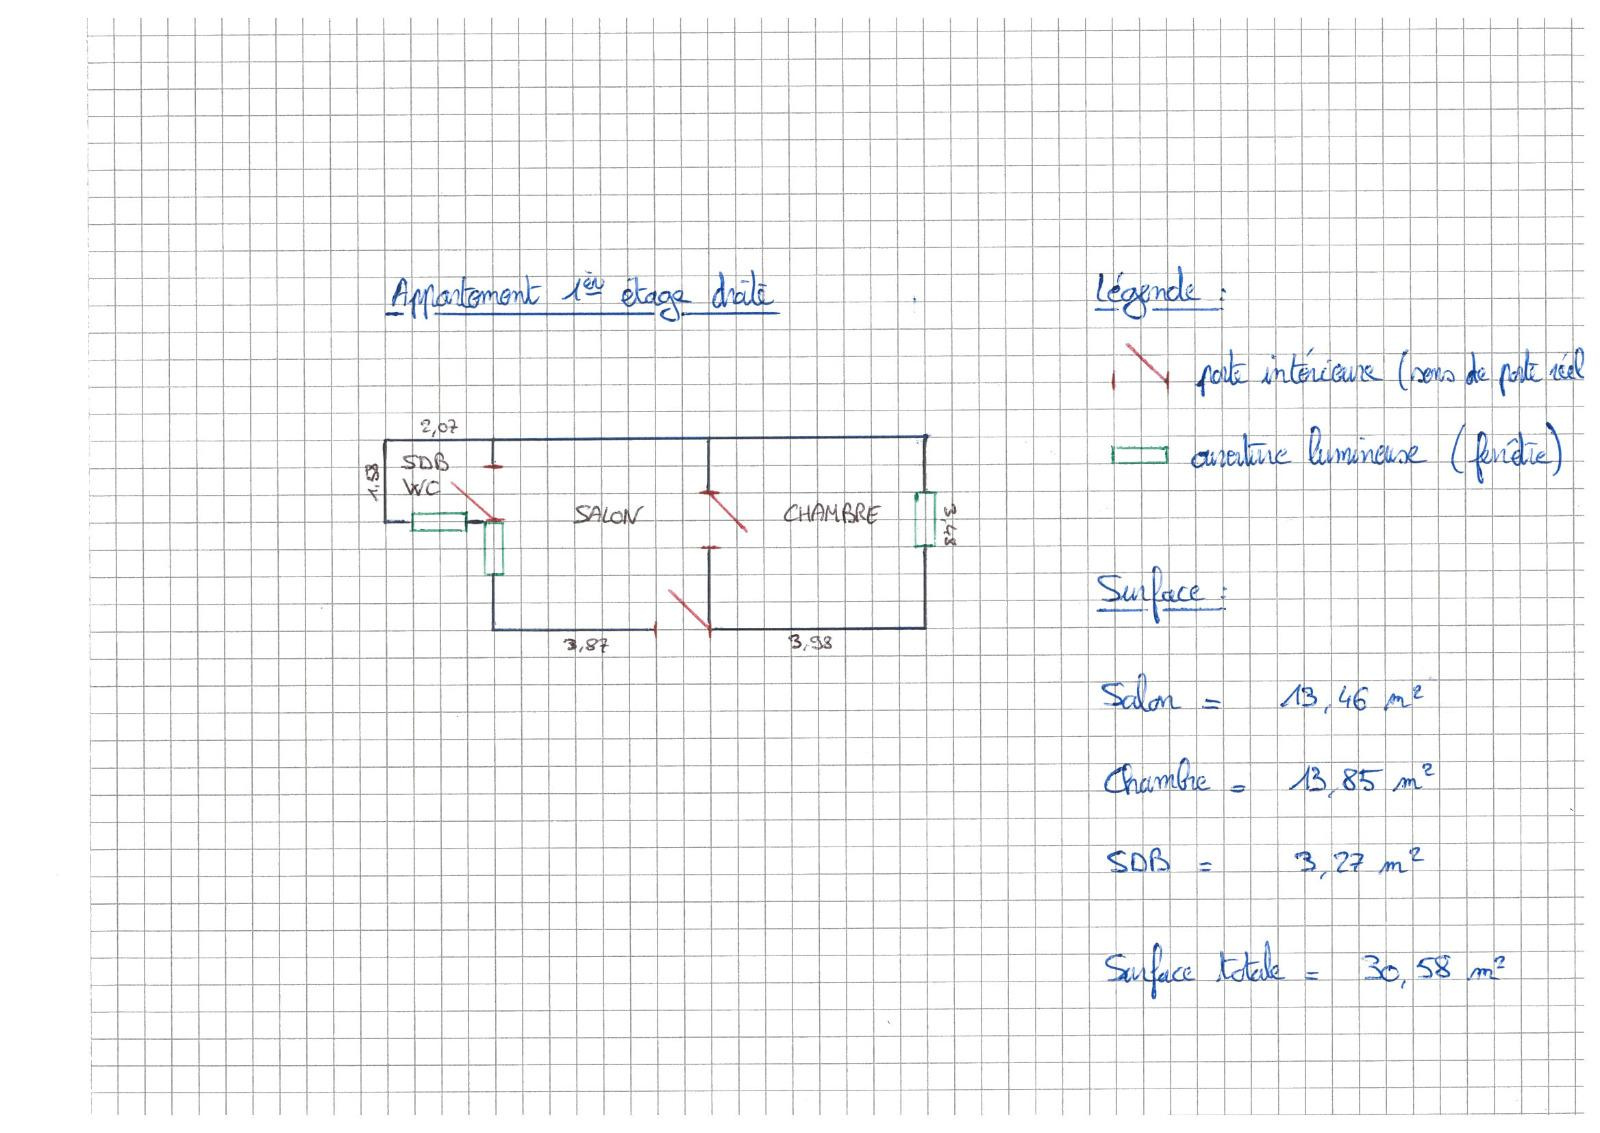 Appartement 1er étage droite
Légende :
porte intérieure (sens de porte réel
ouverture lumineuse (fenêtre)
2,07
1,58
SDB
WC
SALON
CHAMBRE
3,48
3,87
3,98
Surface :
Salon = 13,46 m²
Chambre = 13,85 m²
SDB = 3,27 m²
Surface totale = 30,58 m²